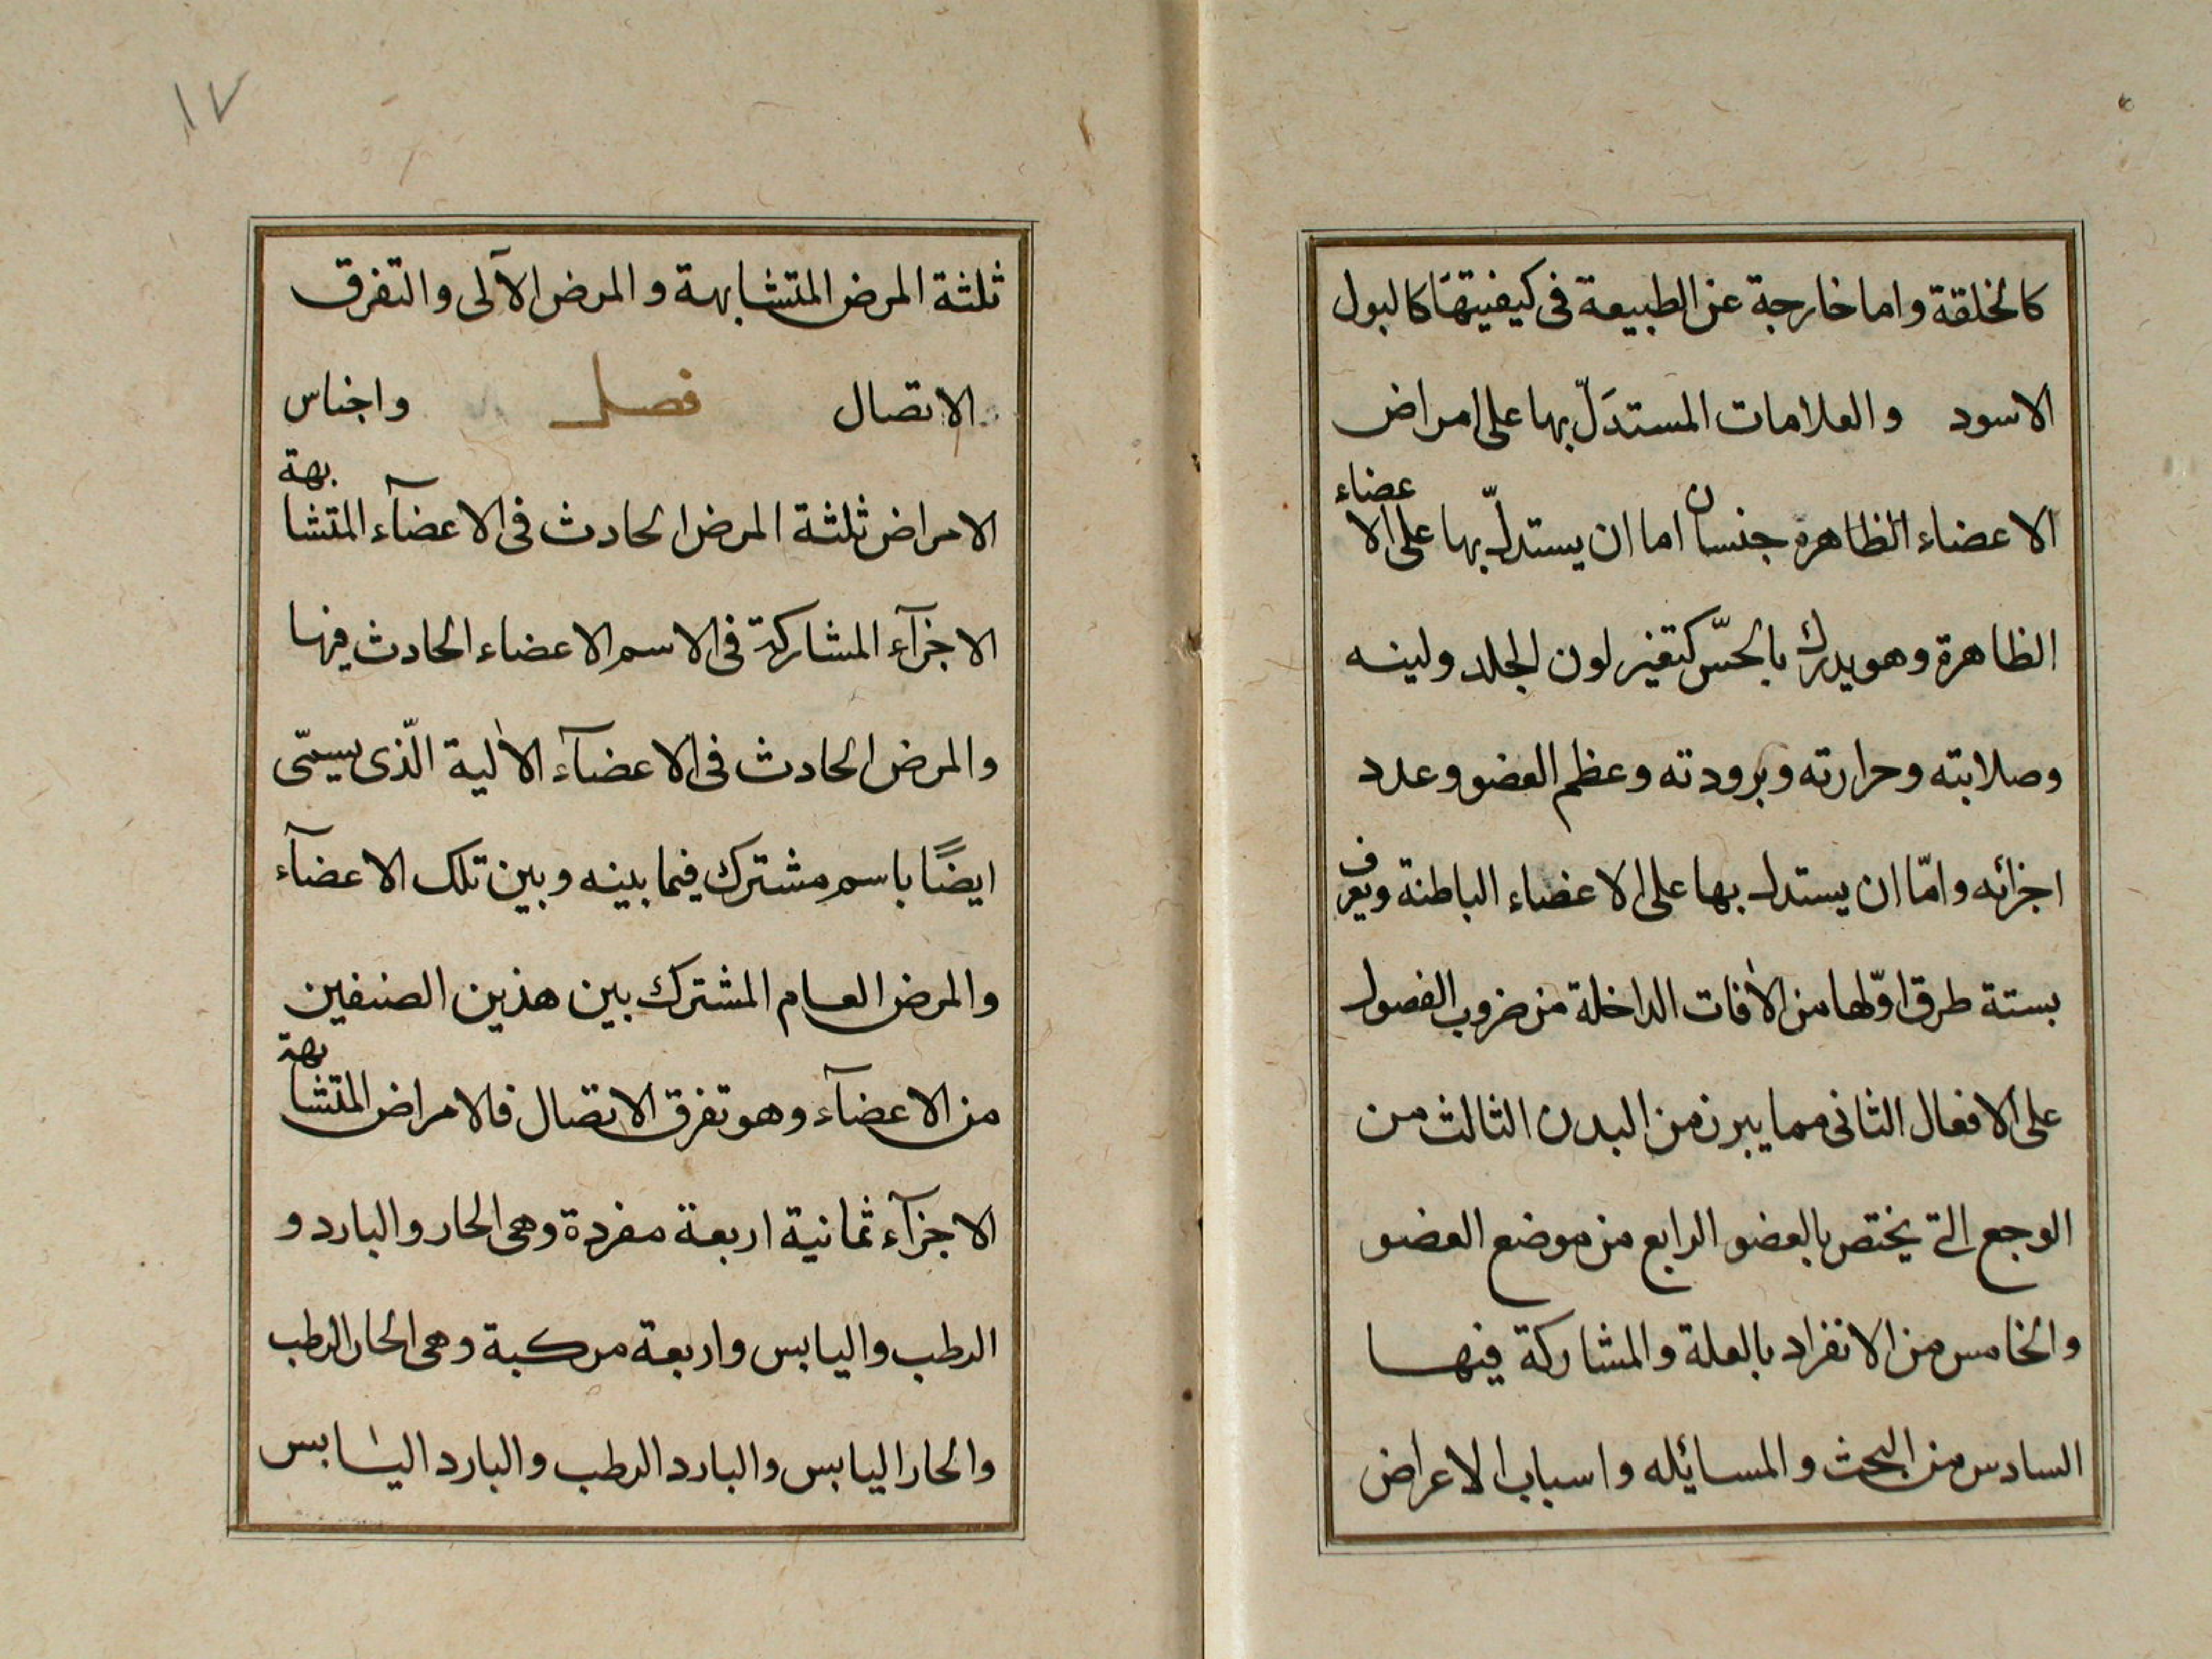 كالخلقة واما خارجة عن الطبيعة فى كيفيتها كالبول
الاسود والعلامات المستدَلّ بها على امراض
الاعضاء الظاهرة جنسان اما ان يستدلّ بها على الاعضاء
الظاهرة وهو يدرك بالحسّ كتغير لون الجلد ولينه
وصلابته وحرارته وبرودته وعظم العضو وعدد
اجزائه وامّا ان يستدل بها على الاعضاء الباطنة ويعرف
بستة طرق اوّلها من الافات الداخلة من ضروب الفصول
على الافعال الثانى مما يبرز من البدن الثالث من
الوجع التى يختص بالعضو الرابع من موضع العضو
والخامس من الانفراد بالعلة والمشاركة فيها
السادس من البحث والمسائله واسباب الاعراض
١٧
ثلثة المرض المتشابهة والمرض الآلى والتفرق
الاتصال فصل واجناس
الامراض ثلثة المرض الحادث فى الاعضآء المتشابهة
الاجزآء المشاركة فى الاسم الاعضاء الحادث فيها
والمرض الحادث فى الاعضآء الالية الّذى يسمّى
ايضًا باسم مشترك فيما بينه وبين تلك الاعضآء
والمرض العام المشترك بين هذين الصنفين
من الاعضآء وهو تفرق الاتصال فالامراض المتشابهة
الاجزآء ثمانية اربعة مفردة وهى الحار والبارد و
الرطب واليابس واربعة مركبة وهى الحار الرطب
والحار اليابس والبارد الرطب والبارد اليابس